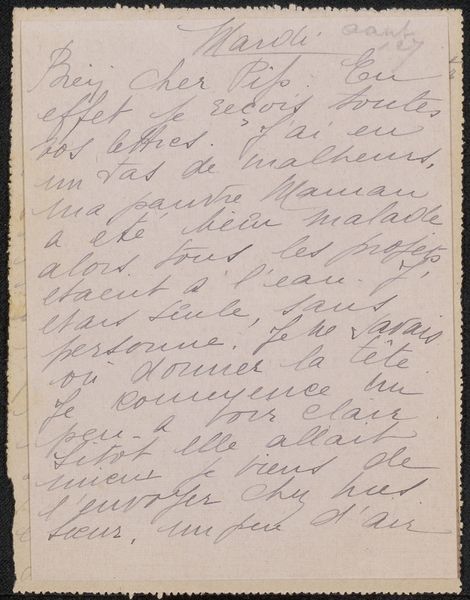 Mardi
Bien cher Pip. En
effet je reçois toutes
vos lettres. J'ai eu
un tas de malheurs,
ma pauvre Maman
a été bien malade
alors tous les projets
étaient à l'eau. J'
étais seule, sans
personne. Je ne savais
où donner la tête.
Je commence un
peu à voir clair.
Sitôt elle allait
mieux je viens de
l'envoyer chez mes
sœur, un peu d'air